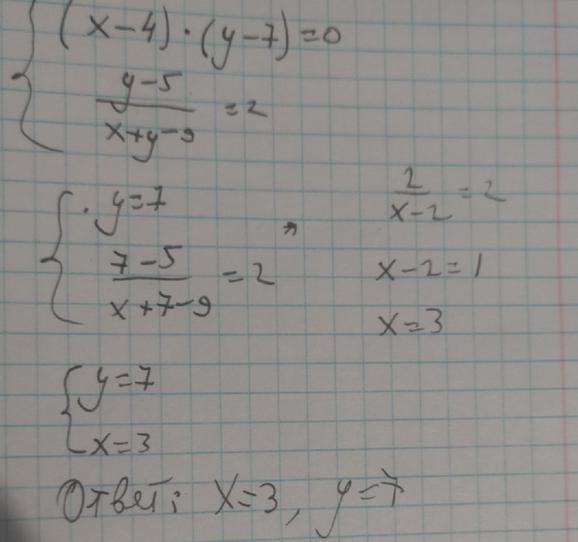 (x-4)·(y-7)=0
y-5 / x+y-9 =2
y=7
7-5 / x+7-9 =2
2 / x-2 =2
x-2=1
x=3
y=7
x=3
Ответ: x=3, y=7